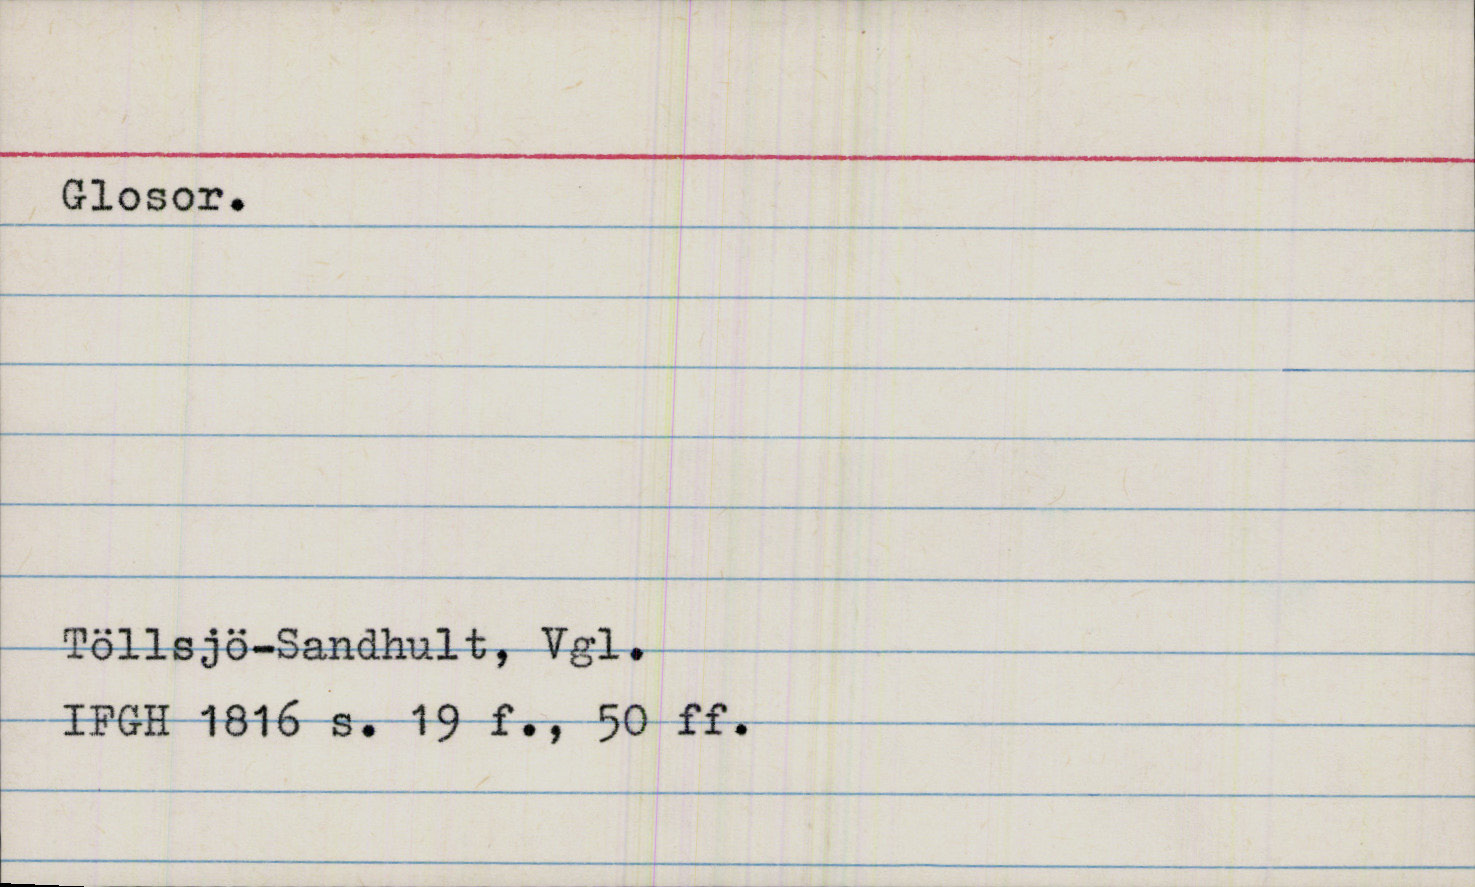 Glosor.
Töllsjö-Sandhult, Vgl.
IFGH 1816 s. 19 f., 50 ff.